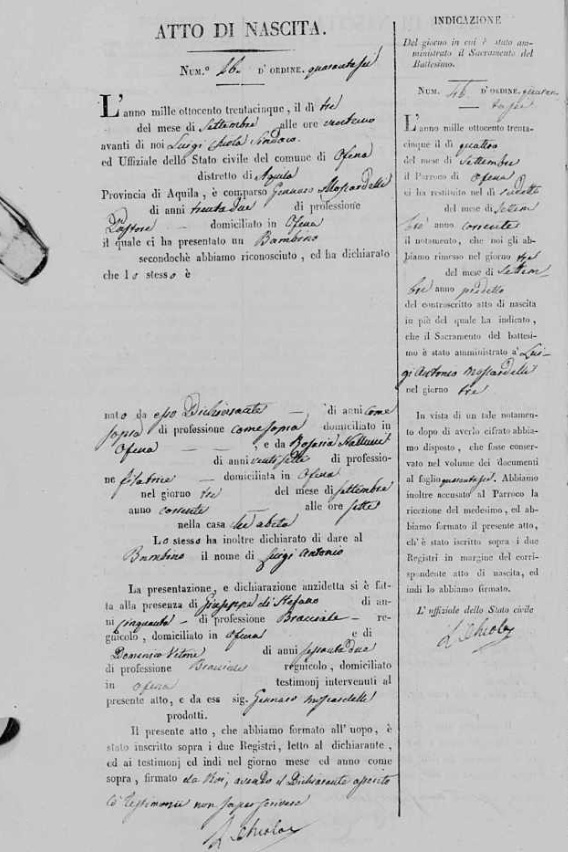 ATTO DI NASCITA.
Num.º 46. d'ordine. quarantasei
L'anno mille ottocento trentacinque, il dì tre
del mese di Settembre alle ore
avanti di noi Luigi Chiola Sindaco
ed Uffiziale dello Stato civile del comune di Ofena
distretto di Aquila
Provincia di Aquila, è comparso Gennaro Moscardelli
di anni trentadue di professione
Pastore domiciliato in Ofena
il quale ci ha presentato un Bambino
secondochè abbiamo riconosciuto, ed ha dichiarato
che lo stesso è
nato da esso Dichiarante di anni come
sopra di professione come sopra domiciliato in
Ofena e da Rosaria
di anni ventisette di professio-
ne filatrice domiciliata in Ofena
nel giorno tre del mese di Settembre
anno corrente alle ore sette
nella casa
Lo stesso ha inoltre dichiarato di dare al
Bambino il nome di Luigi Antonio
La presentazione, e dichiarazione anzidetta si è fat-
ta alla presenza di Giuseppe di Stefano di an-
ni cinquanta di professione Bracciale re-
gnicolo, domiciliato in Ofena e di
Domenico di anni
di professione Bracciale regnicolo, domiciliato
in Ofena testimonj intervenuti al
presente atto, e da esso sig. Gennaro Moscardelli
prodotti.
Il presente atto, che abbiamo formato all' uopo, è
stato inscritto sopra i due Registri, letto al dichiarante,
ed ai testimonj ed indi nel giorno mese ed anno come
sopra, firmato da Noi, avendo il Dichiarante asserito
non saper scrivere
L. Chiola
INDICAZIONE
Del giorno in cui è stato am-
ministrato il Sacramento del
Battesimo.
Num. 46 d'ordine quaran-
tasei
L'anno mille ottocento trenta-
cinque il dì quattro
del mese di Settembre
il Parroco di Ofena
ci ha restituito nel dì sudetto
del mese di Settem
bre anno corrente
il notamento, che noi gli ab-
biamo rimesso nel giorno tre
del mese di Settem
bre anno predetto
del controscritto atto di nascita
in piè del quale ha indicato,
che il Sacramento del battesi-
mo è stato amministrato a Lui-
gi Antonio Moscardelli
nel giorno tre
In vista di un tale notamen-
to dopo di averlo cifrato abbia-
mo disposto, che fosse conser-
vato nel volume dei documenti
al foglio quarantasei. Abbiamo
inoltre accusato al Parroco la
ricezione del medesimo, ed ab-
biamo formato il presente atto,
ch'è stato iscritto sopra i due
Registri in margine del corri-
spondente atto di nascita, ed
indi lo abbiamo firmato.
L' uffiziale dello Stato civile
L. Chiola